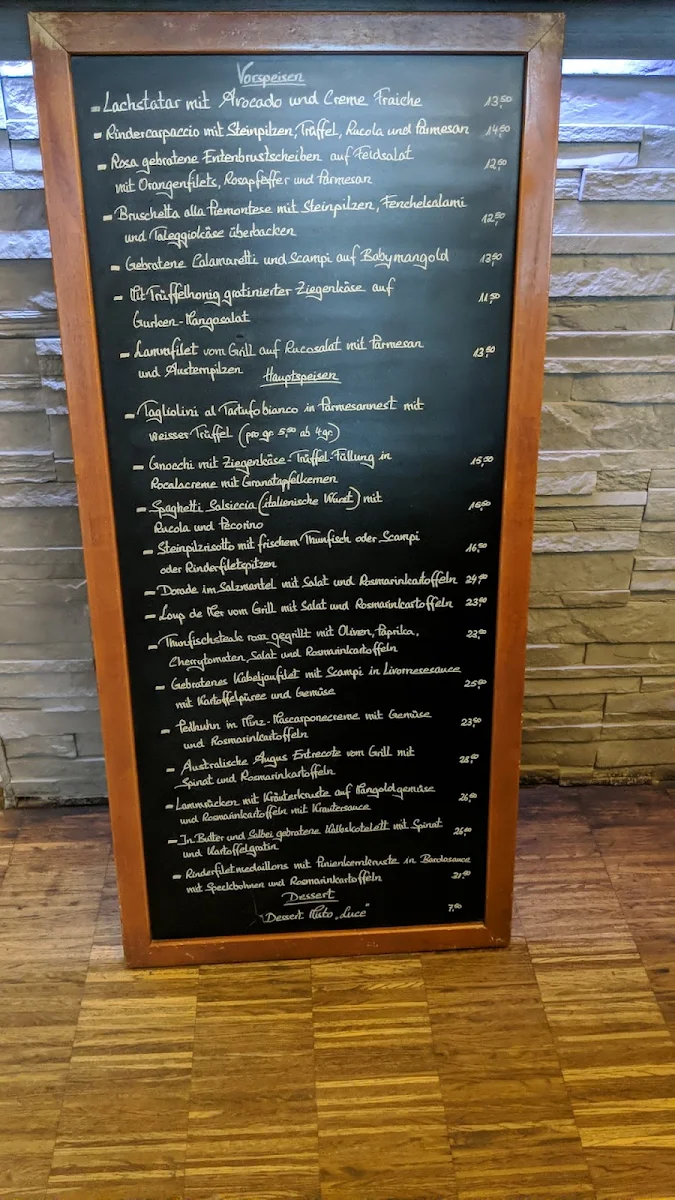 Vorspeisen
- Lachstatar mit Avocado und Creme Fraiche 13,50
- Rindercarpaccio mit Steinpilzen, Trüffel, Rucola und Parmesan 14,50
- Rosa gebratene Entenbrustscheiben auf Feldsalat 12,50
mit Orangenfilets, Rosapfeffer und Parmesan
- Bruschetta alla Piemontese mit Steinpilzen, Fenchelsalami 12,50
und Taleggiokäse überbacken
- Gebratene Calamaretti und Scampi auf Babymangold 13,50
- Mit Trüffelhonig gratinierter Ziegenkäse auf 11,50
Gurken-Mangosalat
- Lammfilet vom Grill auf Rucosalat mit Parmesan 13,50
und Austernpilzen
Hauptspeisen
- Tagliolini al Tartufo bianco in Parmesannest mit
weisser Trüffel (pro gr. 5,00 ab 4gr.)
- Gnocchi mit Ziegenkäse-Trüffel-Füllung in 15,50
Rocalacreme mit Granatapfelkernen
- Spaghetti Salsiccia (italienische Wurst) mit
Rucola und Pecorino
- Steinpilzrisotto mit frischem Thunfisch oder Scampi 16,50
oder Rinderfiletspitzen
- Dorade im Salzmantel mit Salat und Rosmarinkartoffeln
- Loup de Mer vom Grill mit Salat und Rosmarinkartoffeln
- Thunfischsteak rosa gegrillt mit Oliven, Paprika,
Cherrytomaten, Salat und Rosmarinkartoffeln
- Gebratenes Kabeljaufilet mit Scampi in Livornesesauce
mit Kartoffelpüree und Gemüse
- Perlhuhn in Minz-Mascarponecreme mit Gemüse
und Rosmarinkartoffeln
- Australische Angus Entrecote vom Grill mit
Spinat und Rosmarinkartoffeln
- Lammrücken mit Kräuterkruste auf Mangoldgemüse
und Rosmarinkartoffeln mit Kräutersauce
- In Butter und Salbei gebratene Kalbskotelett mit Spinat
und Kartoffelgratin
- Rinderfiletmedaillons mit Pinienkernkruste in Barolosauce
mit Speckbohnen und Rosmarinkartoffeln
Dessert
Dessert Misto „Luce"